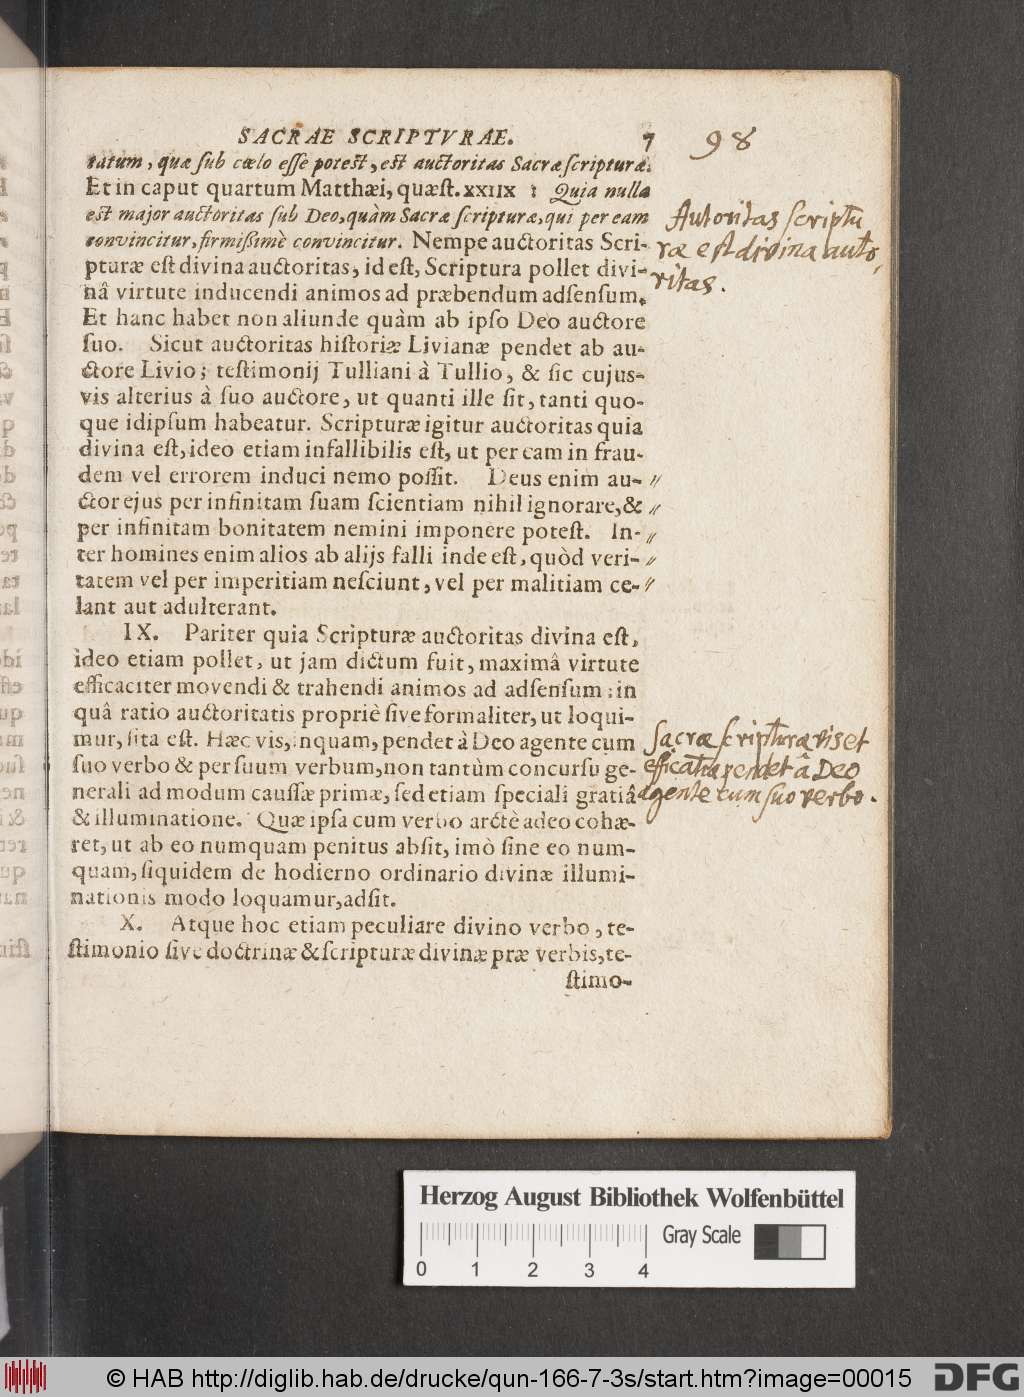 SACRAE SCRIPTVRAE. 7 98
tatum, quæ ſub cœlo eſſe potest, est auctoritas Sacræ ſcripturæ.
Et in caput quartum Matthæi, quæſt. XXIIX : Quia nulla
est major auctoritas ſub Deo, quàm Sacræ ſcripturæ, qui per eam
convincitur, firmißimè convincitur. Nempe auctoritas Scri-
pturæ eſt divina auctoritas, id eſt, Scriptura pollet divi-
nâ virtute inducendi animos ad præbendum adſenſum.
Et hanc habet non aliunde quàm ab ipſo Deo auctore
ſuo. Sicut auctoritas hiſtoriæ Livianæ pendet ab au-
ctore Livio; teſtimonij Tulliani à Tullio, & ſic cujus-
vis alterius à ſuo auctore, ut quanti ille ſit, tanti quo-
que idipſum habeatur. Scripturæ igitur auctoritas quia
divina eſt, ideo etiam infallibilis eſt, ut per eam in frau-
dem vel errorem induci nemo poſſit. Deus enim au-
ctor ejus per infinitam ſuam ſcientiam nihil ignorare, &
per infinitam bonitatem nemini imponere poteſt. In-
ter homines enim alios ab alijs falli inde eſt, quòd veri-
tatem vel per imperitiam neſciunt, vel per malitiam ce-
lant aut adulterant.
IX. Pariter quia Scripturæ auctoritas divina eſt,
ideo etiam pollet, ut jam dictum fuit, maximâ virtute
efficaciter movendi & trahendi animos ad adſenſum: in
quâ ratio auctoritatis propriè ſive formaliter, ut loqui-
mur, ſita eſt. Hæc vis, inquam, pendet à Deo agente cum
ſuo verbo & per ſuum verbum, non tantùm concurſu ge-
nerali ad modum cauſſæ primæ, ſed etiam ſpeciali gratiâ
& illuminatione. Quæ ipſa cum verbo arctè adeo cohæ-
ret, ut ab eo numquam penitus abſit, imò ſine eo num-
quam, ſiquidem de hodierno ordinario divinæ illumi-
nationis modo loquamur, adſit.
X. Atque hoc etiam peculiare divino verbo, te-
ſtimonio ſive doctrinæ & ſcripturæ divinæ præ verbis, te-
ſtimo-
Autoritas scriptu
ræ est divina auto,
ritas.
Sacræ scripturæ vis et
efficatia pendet â Deo
agente cum suo verbo.
Herzog August Bibliothek Wolfenbüttel
Gray Scale
0 1 2 3 4
© HAB http://diglib.hab.de/drucke/qun-166-7-3s/start.htm?image=00015
DFG